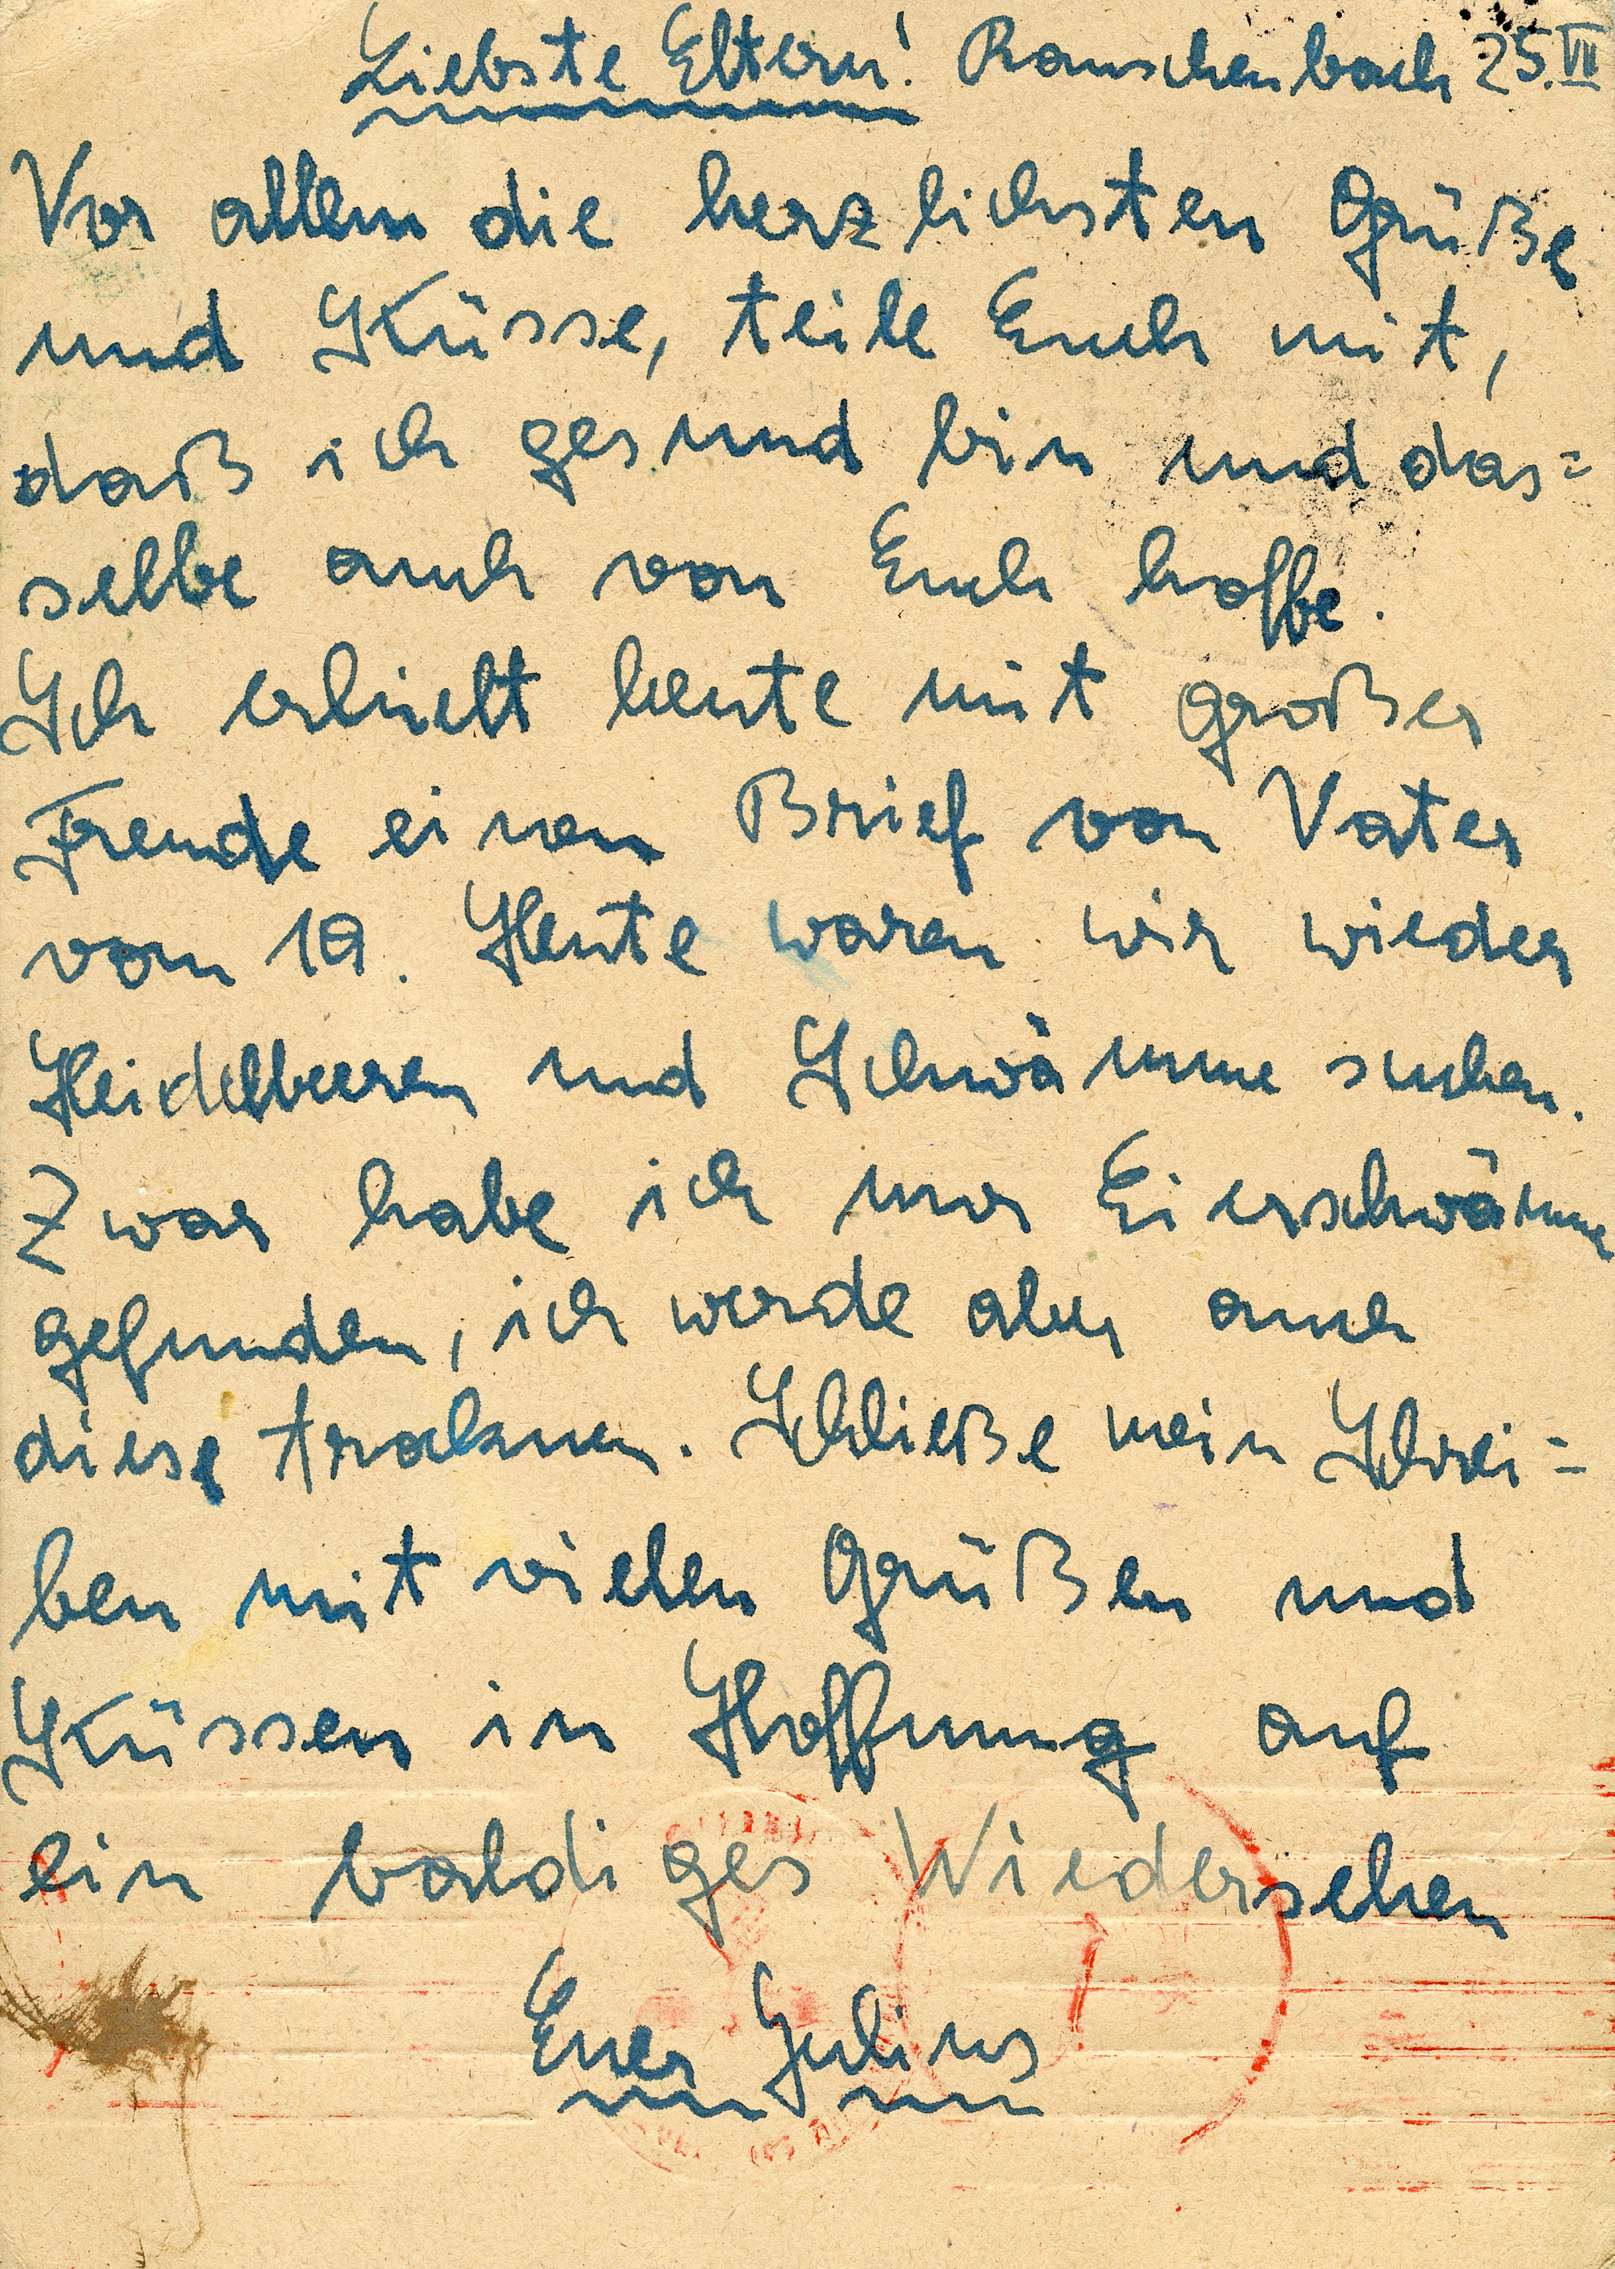 Liebste Eltern! Rauschenbach 25.VII
Vor allem die herzlichsten Grüße
und Küsse, teile Euch mit,
daß ich gesund bin und das=
selbe auch von Euch hoffe.
Ich erhielt heute mit großer
Freude einen Brief von Vater
vom 19. Heute waren wir wieder
Heidelbeeren und Schwämme suchen.
Zwar habe ich nur Eierschwämme
gefunden, ich werde aber auch
diese trocknen. Schließe mein Schrei=
ben mit vielen Grüßen und
Küssen in Hoffnung auf
ein baldiges Wiedersehen
Euer Julius